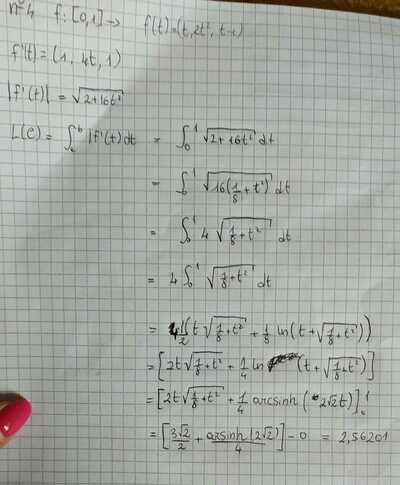 n°4 f: [0,1] → f(t)=(t, 2t², t-1)
f'(t) = (1, 4t, 1)
|f'(t)| = √(2+16t²)
L(C) = ∫ₐᵇ |f'(t)| dt = ∫₀¹ √(2+16t²) dt
= ∫₀¹ √(16(1/8 + t²)) dt
= ∫₀¹ 4 √(1/8 + t²) dt
= 4 ∫₀¹ √(1/8 + t²) dt
= 4(1/2 (t √(1/8 + t²) + 1/8 ln(t + √(1/8 + t²))
= [2t √(1/8 + t²) + 1/4 ln (t + √(1/8 + t²)]
= [2t √(1/8 + t²) + 1/4 arcsinh (2√2t)]₀¹
= [3√2/2 + arsinh(2√2)/4] - 0 = 2,56201